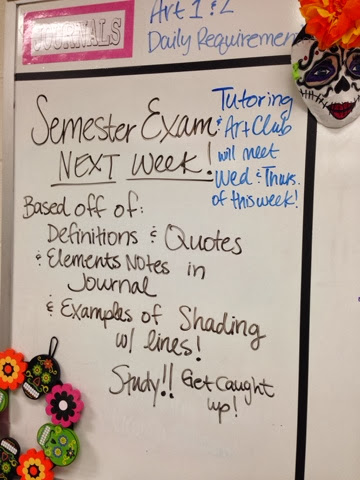 JOURNALS
Art 1 & 2
Daily Requirement
Semester Exam
NEXT WEEK!
Tutoring
& Art Club
will meet
Wed & Thurs.
of this week!
Based off of:
Definitions & Quotes
& Elements Notes in
Journal
& Examples of Shading
w/ lines!
Study!! Get Caught
up!